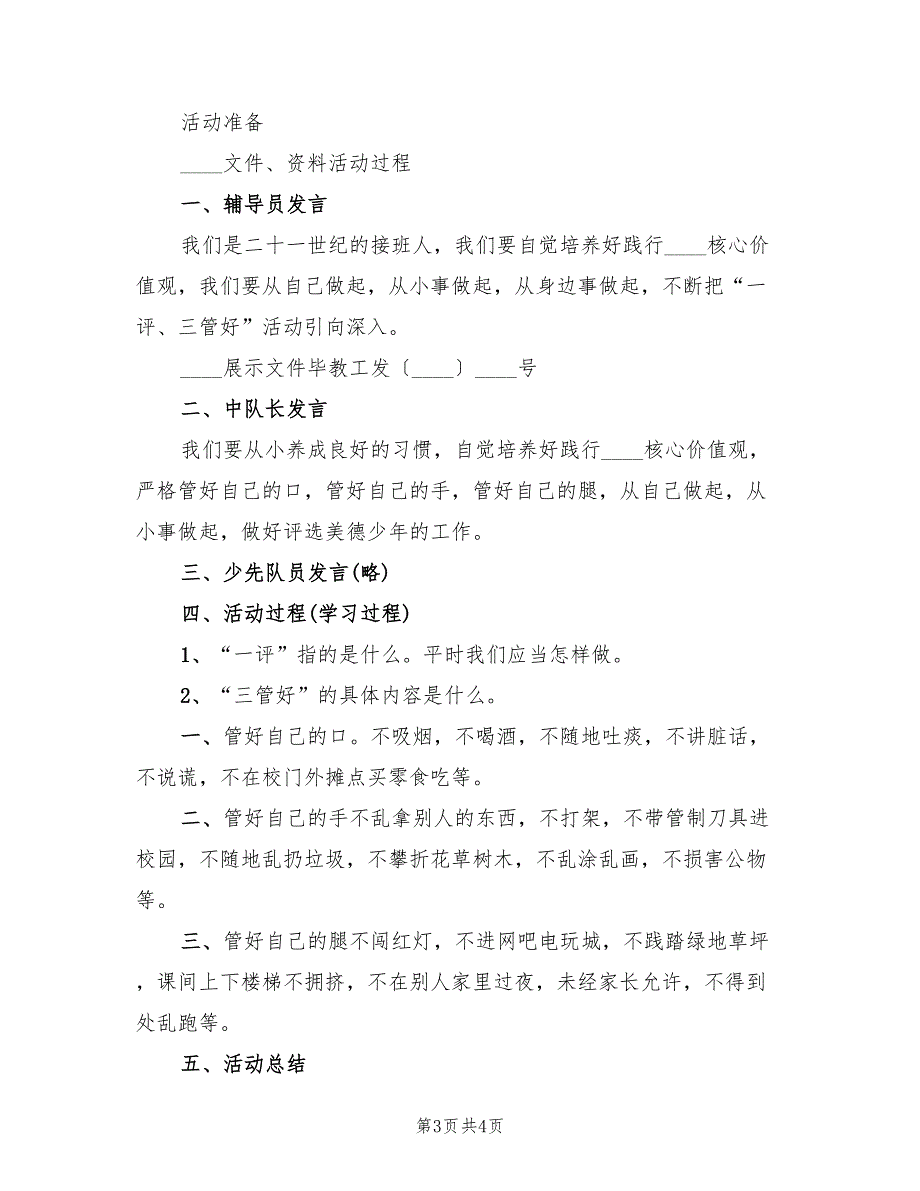 活动准备
____文件、资料活动过程
一、辅导员发言
我们是二十一世纪的接班人，我们要自觉培养好践行____核心价
值观，我们要从自己做起，从小事做起，从身边事做起，不断把“一
评、三管好”活动引向深入。
____展示文件毕教工发〔____〕____号
二、中队长发言
我们要从小养成良好的习惯，自觉培养好践行____核心价值观，
严格管好自己的口，管好自己的手，管好自己的腿，从自己做起，从
小事做起，做好评选美德少年的工作。
三、少先队员发言(略)
四、活动过程(学习过程)
1、“一评”指的是什么。平时我们应当怎样做。
2、“三管好”的具体内容是什么。
一、管好自己的口。不吸烟，不喝酒，不随地吐痰，不讲脏话，
不说谎，不在校门外摊点买零食吃等。
二、管好自己的手不乱拿别人的东西，不打架，不带管制刀具进
校园，不随地乱扔垃圾，不攀折花草树木，不乱涂乱画，不损害公物
等。
三、管好自己的腿不闯红灯，不进网吧电玩城，不践踏绿地草坪
，课间上下楼梯不拥挤，不在别人家里过夜，未经家长允许，不得到
处乱跑等。
五、活动总结
第3页共4页